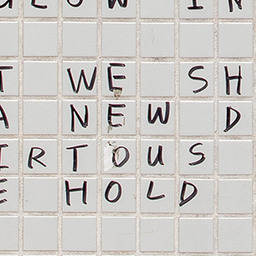 GLOW IN
T WE SH
A NEW D
IRTOUS
E HOLD